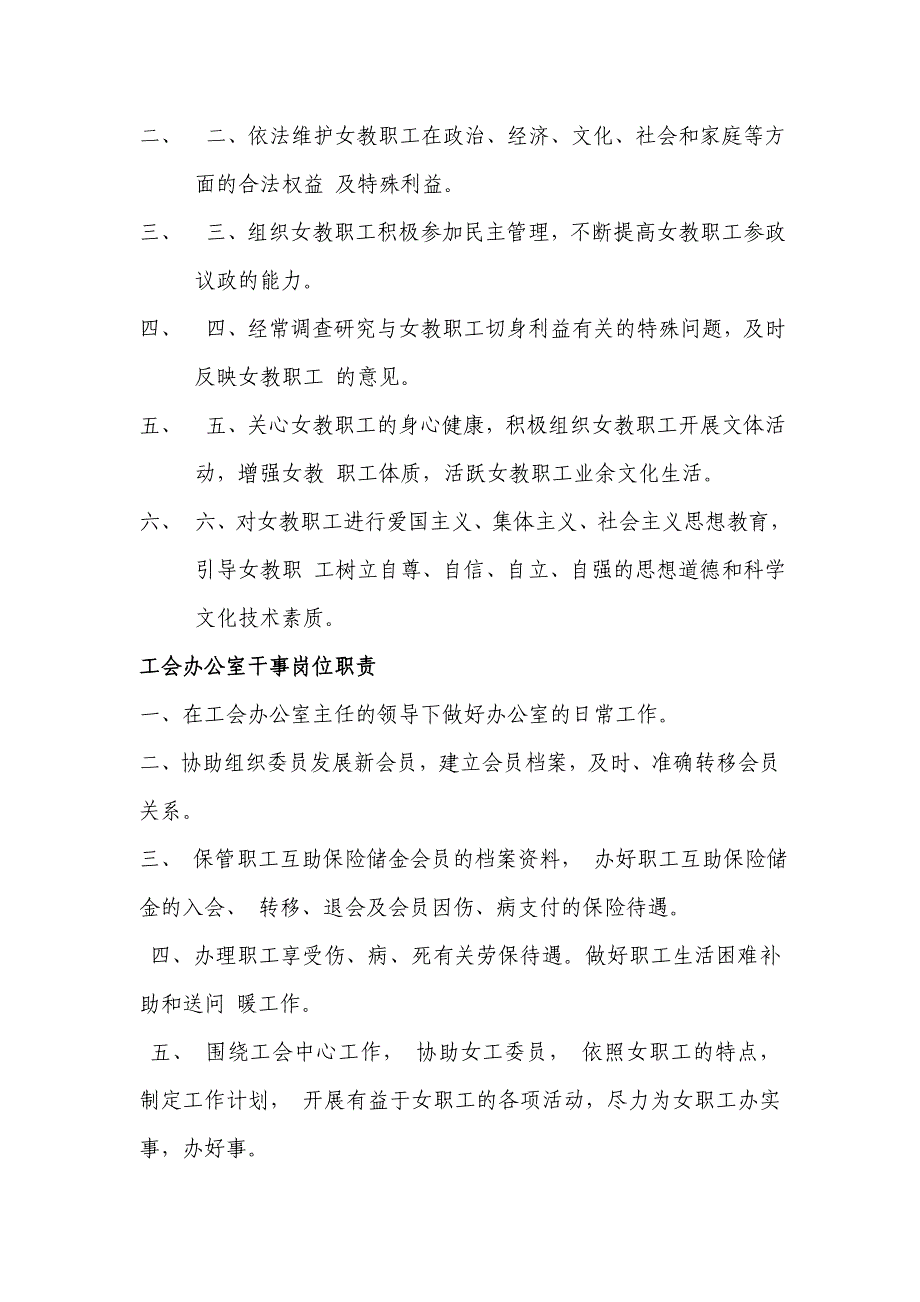 二、 二、依法维护女教职工在政治、经济、文化、社会和家庭等方
面的合法权益 及特殊利益。
三、 三、组织女教职工积极参加民主管理，不断提高女教职工参政
议政的能力。
四、 四、经常调查研究与女教职工切身利益有关的特殊问题，及时
反映女教职工 的意见。
五、 五、关心女教职工的身心健康，积极组织女教职工开展文体活
动，增强女教 职工体质，活跃女教职工业余文化生活。
六、 六、对女教职工进行爱国主义、集体主义、社会主义思想教育，
引导女教职 工树立自尊、自信、自立、自强的思想道德和科学
文化技术素质。
工会办公室干事岗位职责
一、在工会办公室主任的领导下做好办公室的日常工作。
二、协助组织委员发展新会员，建立会员档案，及时、准确转移会员
关系。
三、 保管职工互助保险储金会员的档案资料， 办好职工互助保险储
金的入会、 转移、退会及会员因伤、病支付的保险待遇。
四、办理职工享受伤、病、死有关劳保待遇。做好职工生活困难补
助和送问 暖工作。
五、 围绕工会中心工作， 协助女工委员， 依照女职工的特点，
制定工作计划， 开展有益于女职工的各项活动，尽力为女职工办实
事，办好事。